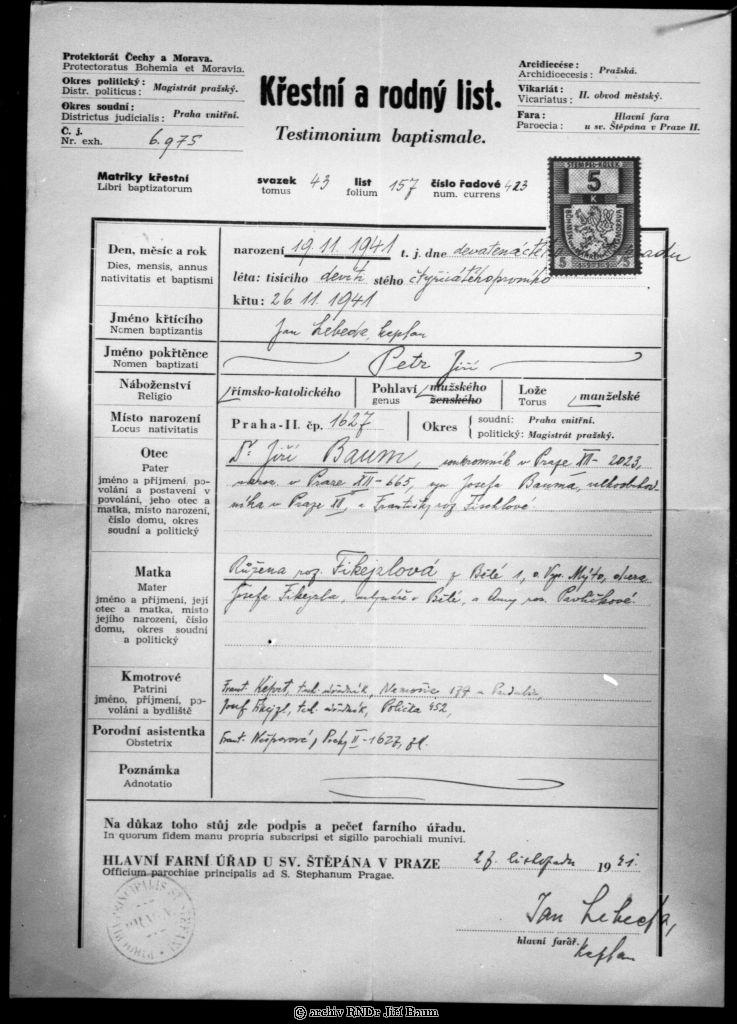 Protektorát Čechy a Morava.
Protectoratus Bohemia et Moravia.
Okres politický: Magistrát pražský.
Distr. politicus:
Okres soudní: Praha vnitřní.
Districtus judicialis:
Č. j. 6.975
Nr. exh.
Křestní a rodný list.
Testimonium baptismale.
Arcidiecése: Pražská.
Archidioecesis:
Vikariát: II. obvod městský.
Vicariatus:
Fara: Hlavní fara
Paroecia: u sv. Štěpána v Praze II.
Matriky křestní svazek 43 list 157 číslo řadové 423
Libri baptizatorum tomus folium num. currens
STEMPEL-KOLEK
5
K
Den, měsíc a rok narození 19. 11. 1941 t. j. dne
Dies, mensis, annus léta: tisícího devítistého čtyřicátéhoprvního
nativitatis et baptismi křtu: 26. 11. 1941
Jméno křtícího Jan Lebeda, kaplan
Nomen baptizantis
Jméno pokřtěnce Petr Jiří
Nomen baptizati
Náboženství římsko-katolického Pohlaví mužského Lože manželské
Religio genus ženského Torus
Místo narození Praha-II. čp. 1627 Okres soudní: Praha vnitřní.
Locus nativitatis politický: Magistrát pražský.
Otec Dr Jiří Baum, soukromník v Praze XII-2023,
Pater naroz. v Praze XII-665, syn Josefa Bauma, velkoobchod-
jméno a příjmení, po- níka v Praze XII, a Františky roz. Fischlové.
volání a postavení v
povolání, jeho otec a
matka, místo narození,
číslo domu, okres
soudní a politický
Matka Růžena roz. Fikejzlová z Bělé 1, o. Vys. Mýto, dcera
Mater Josefa Fikejzla, mlynáře v Bělé, a Anny roz. Pavlíčkové.
jméno a příjmení, její
otec a matka, místo
jejího narození, číslo
domu, okres soudní
a politický
Kmotrové Frant. tech. úředník,
Patrini Josef Fikejzl, tech. úředník, Polička 452,
jméno, příjmení, po-
volání a bydliště
Porodní asistentka Frant. II-1627,
Obstetrix
Poznámka
Adnotatio
Na důkaz toho stůj zde podpis a pečeť farního úřadu.
In quorum fidem manu propria subscripsi et sigillo parochiali munivi.
HLAVNÍ FARNÍ ÚŘAD U SV. ŠTĚPÁNA V PRAZE 27. listopadu 1941.
Officium parochiae principalis ad S. Stephanum Pragae.
Jan Lebeda,
hlavní farář. kaplan
© archiv RNDr Jiří Baum